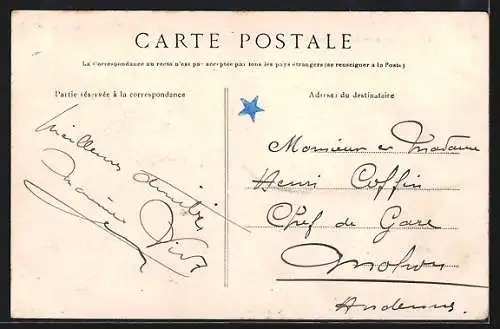 CARTE POSTALE
La Correspondance au recto n'est pas acceptée par tous les pays étrangers (se renseigner à la Poste)
Partie réservée à la correspondance
Meilleures amitiés
Adresse du destinataire
Monsieur et Madame
Henri Coffin
Chef de Gare
Mohon
Ardennes.